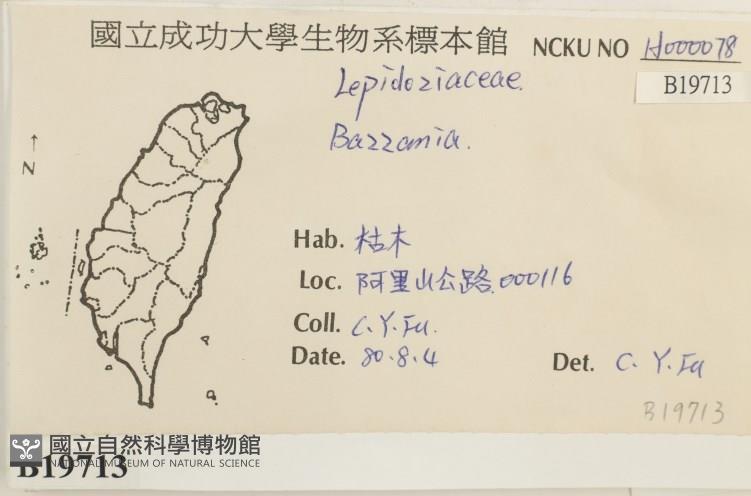 國立成功大學生物系標本館 NCKU NO H000078
B19713
Lepidoziaceae.
Bazzania.
↑
N
Hab. 枯木
Loc. 阿里山公路.000116
Coll. C.Y.Fu.
Date. 80.8.4 Det. C.Y.Fu
B19713
國立自然科學博物館
NATIONAL MUSEUM OF NATURAL SCIENCE
B19713